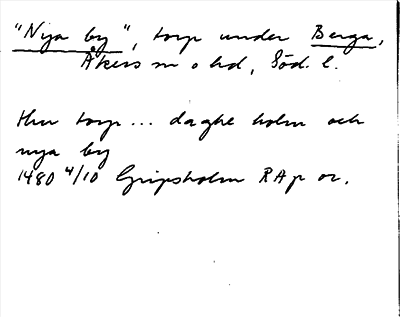 "Nya by", torp under Berga,
Åkers sn o hd, Söd. l.
thn torp ... daghe holm och
nya by
1480 4/10 Gripsholm RAp or.